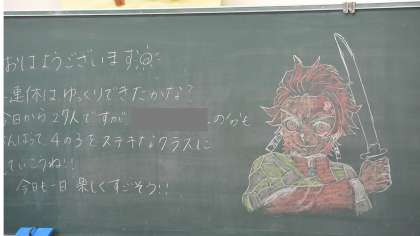 おはようございます
連休はゆっくりできたかな？
今日から27人ですが のみかも
んばって4の3をステキなクラスに
ていこうね!!
今日も一日楽しくすごそう!!